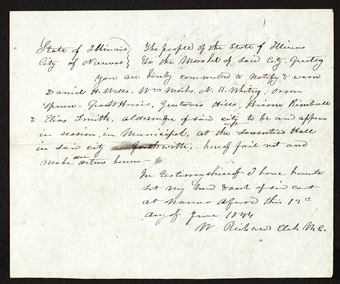 State of Illinois } The people of the State of Illinois
City of Nauvoo } To the Marshal of said City, Greeting
You are hereby commanded to Notify & warn
Daniel H. Wells. Wm Marks, N. K. Whitney, Orson
Spencer. Geo W Harris, Gustavus Hills, Hiram Kimball
& Elias Smith, aldermen of said city to be and appear
in session, in Municipal, at the Seventies Hall
in said city forthwith, hereof fail not and
make due return hereon —
In testimony whereof I have hereunto
set my hand & seal of said court
at Nauvoo Aforesd this 12th
day of June 1844
W Richards Clerk M.C.